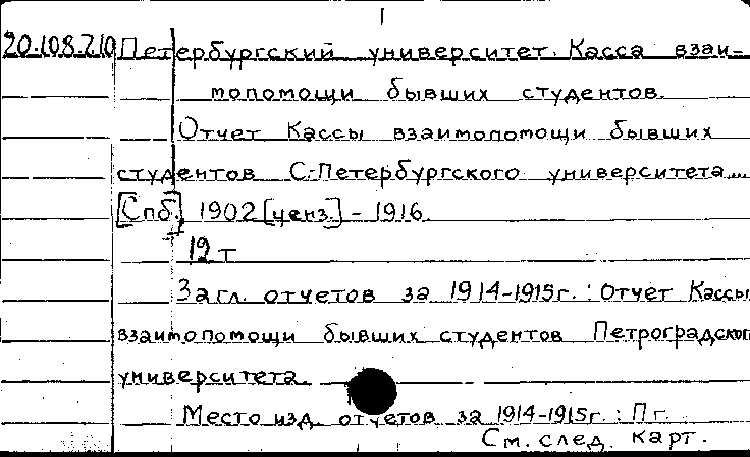 I
20.108.710 Петербургский университет. Касса взаи-
мопомощи бывших студентов.
Отчет Кассы взаимопомощи бывших
студентов С.-Петербургского университета....
[Спб.], 1902 [ценз.] - 1916.
12 т
Загл. отчетов за 1914-1915г.: Отчет Кассы
взаимопомощи бывших студентов Петроградског
университета.
Место изд. отчетов за 1914-1915г.: Пг.
См. след. карт.